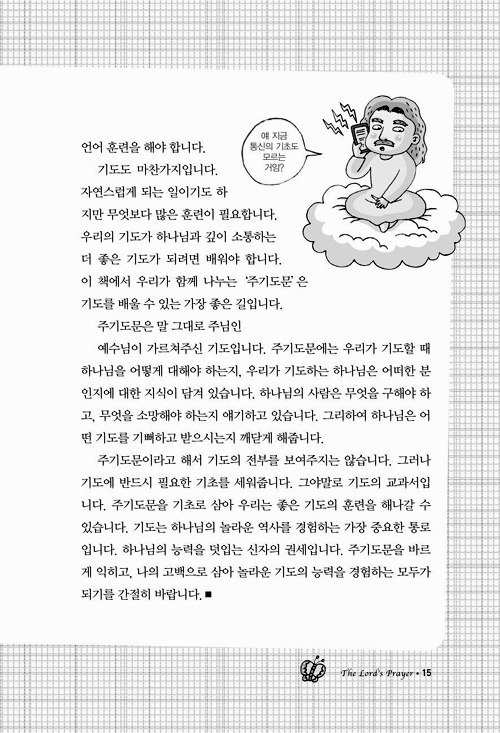 언어 훈련을 해야 합니다.
기도도 마찬가지입니다.
자연스럽게 되는 일이기도 하
지만 무엇보다 많은 훈련이 필요합니다.
우리의 기도가 하나님과 깊이 소통하는
더 좋은 기도가 되려면 배워야 합니다.
이 책에서 우리가 함께 나누는 ‘주기도문’은
기도를 배울 수 있는 가장 좋은 길입니다.
주기도문은 말 그대로 주님인
예수님이 가르쳐주신 기도입니다. 주기도문에는 우리가 기도할 때
하나님을 어떻게 대해야 하는지, 우리가 기도하는 하나님은 어떠한 분
인지에 대한 지식이 담겨 있습니다. 하나님의 사람은 무엇을 구해야 하
고, 무엇을 소망해야 하는지 얘기하고 있습니다. 그리하여 하나님은 어
떤 기도를 기뻐하고 받으시는지 깨닫게 해줍니다.
주기도문이라고 해서 기도의 전부를 보여주지는 않습니다. 그러나
기도에 반드시 필요한 기초를 세워줍니다. 그야말로 기도의 교과서입
니다. 주기도문을 기초로 삼아 우리는 좋은 기도의 훈련을 해나갈 수
있습니다. 기도는 하나님의 놀라운 역사를 경험하는 가장 중요한 통로
입니다. 하나님의 능력을 덧입는 신자의 권세입니다. 주기도문을 바르
게 익히고, 나의 고백으로 삼아 놀라운 기도의 능력을 경험하는 모두가
되기를 간절히 바랍니다. ■
얘 지금
통신의 기초도
모르는
거얌?
The Lord's Prayer • 15